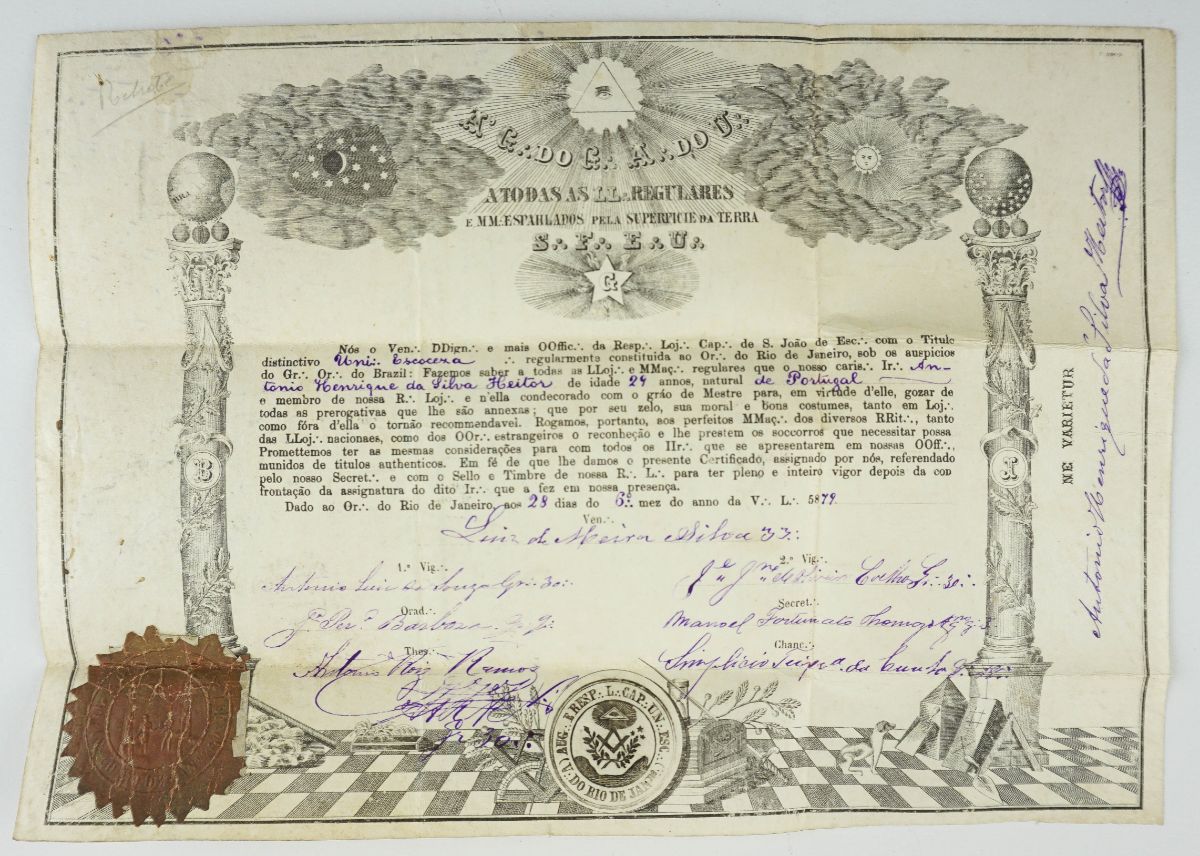 Retrato
Á G∴ DO G∴ A∴ DO U∴
A TODAS AS LL∴ REGULARES
E MM∴ ESPAHLADOS PELA SUPERFICIE DA TERRA
S∴ F∴ E∴ U∴
G
Nós o Ven∴ DDign∴ e mais OOffic∴ da Resp∴ Loj∴ Cap∴ de S. João de Esc∴ com o Titulo
distinctivo Uni∴ Escoceza ∴ regularmente constituida ao Or∴ do Rio de Janeiro, sob os auspicios
do Gr∴ Or∴ do Brazil: Fazemos saber a todas as LLoj∴ e MMaç∴ regulares que o nosso caris∴ Ir∴ An-
tonio Henrique da Silva Heitor de idade 29 annos, natural de Portugal
e membro de nossa R∴ Loj∴ e n'ella condecorado com o gráo de Mestre para, em virtude d'elle, gozar de
todas as prerogativas que lhe são annexas; que por seu zelo, sua moral e bons costumes, tanto em Loj∴
como fóra d'ella o tornão recommendavel. Rogamos, portanto, aos perfeitos MMaç∴ dos diversos RRit∴, tanto
das LLoj∴ nacionaes, como dos OOr∴ estrangeiros o reconheção e lhe prestem os soccorros que necessitar possa
Promettemos ter as mesmas considerações para com todos os IIr∴ que se apresentarem em nossas OOff∴,
munidos de titulos authenticos. Em fé de que lhe damos o presente Certificado, assignado por nós, referendado
pelo nosso Secret∴ e com o Sello e Timbre de nossa R∴ L∴ para ter pleno e inteiro vigor depois da con
frontação da assignatura do dito Ir∴ que a fez em nossa presença.
Dado ao Or∴ do Rio de Janeiro, aos 28 dias do 6º mez do anno da V∴ L∴ 5879.
Ven∴
Luiz de Meira Silva 33∴
1.º Vig∴
Antonio Luiz de Souza Gr∴ 30∴
2.º Vig∴
Coelho G∴ 30∴
Orad∴
Barboza
Secret∴
Manoel Fortunato
Thes∴
Antonio Ramos
Gr∴ 30∴
Chanc∴
Simplicio Teixª da Cunha
B
J
NE VARIETUR
Antonio Henrique da Silva Heitor
AUG∴ E RESP∴ L∴ CAP∴ UN∴ ESC∴
DO RIO DE JAN